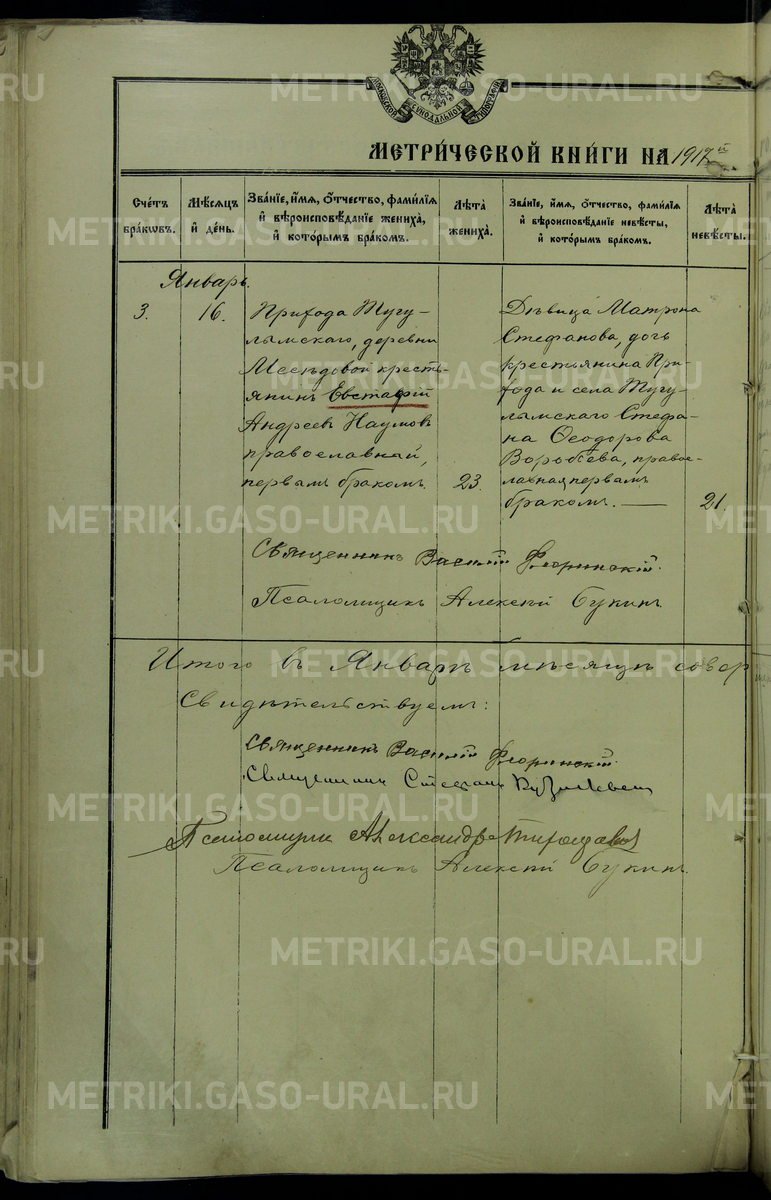 МОСКОВСКОЙ СѴНОДАЛЬНОЙ ТИПОГРАФІИ
МЕТРИ́ЧЕСКОЙ КНИ́ГИ НА 1917й
Сче́тъ бра́кѡвъ.
Мѣ́сѧцъ и҆ де́нь.
Зва́нїе, и҆́мѧ, ѻ҆́тчество, фами́лїѧ и҆ вѣроисповѣ́данїе жениха̀, и҆ кото́рымъ бра́комъ.
Лѣ̑та жениха̀.
Зва́нїе, и҆́мѧ, ѻ҆́тчество, фами́лїѧ и҆ вѣроисповѣ́данїе невѣ́сты, и҆ кото́рымъ бра́комъ.
Лѣ̑та невѣ́сты.
Январь.
3.
16.
Прихода Тугу-
лымскаго, деревни
Мсѣдовой кресть-
янинъ Евстафій
Андреевъ Наумовъ
православный,
первымъ бракомъ.
23.
Дѣвица Матрона
Стефанова, дочь
крестьянина При-
хода и села Тугу-
лымскаго Стефа-
на Ѳеодорова
Воробьева, право-
славная, первымъ
бракомъ. —
21.
Священникъ Василій Флоринскій.
Псаломщикъ Алексѣй Букинъ
Итого въ Январѣ мѣсяцѣ совер
Свидѣтельствуемъ:
Священникъ Василій Флоринскій.
Священникъ Стефанъ
Псаломщикъ Александръ
Псаломщикъ Алексѣй Букинъ.
METRIKI.GASO-URAL.RU